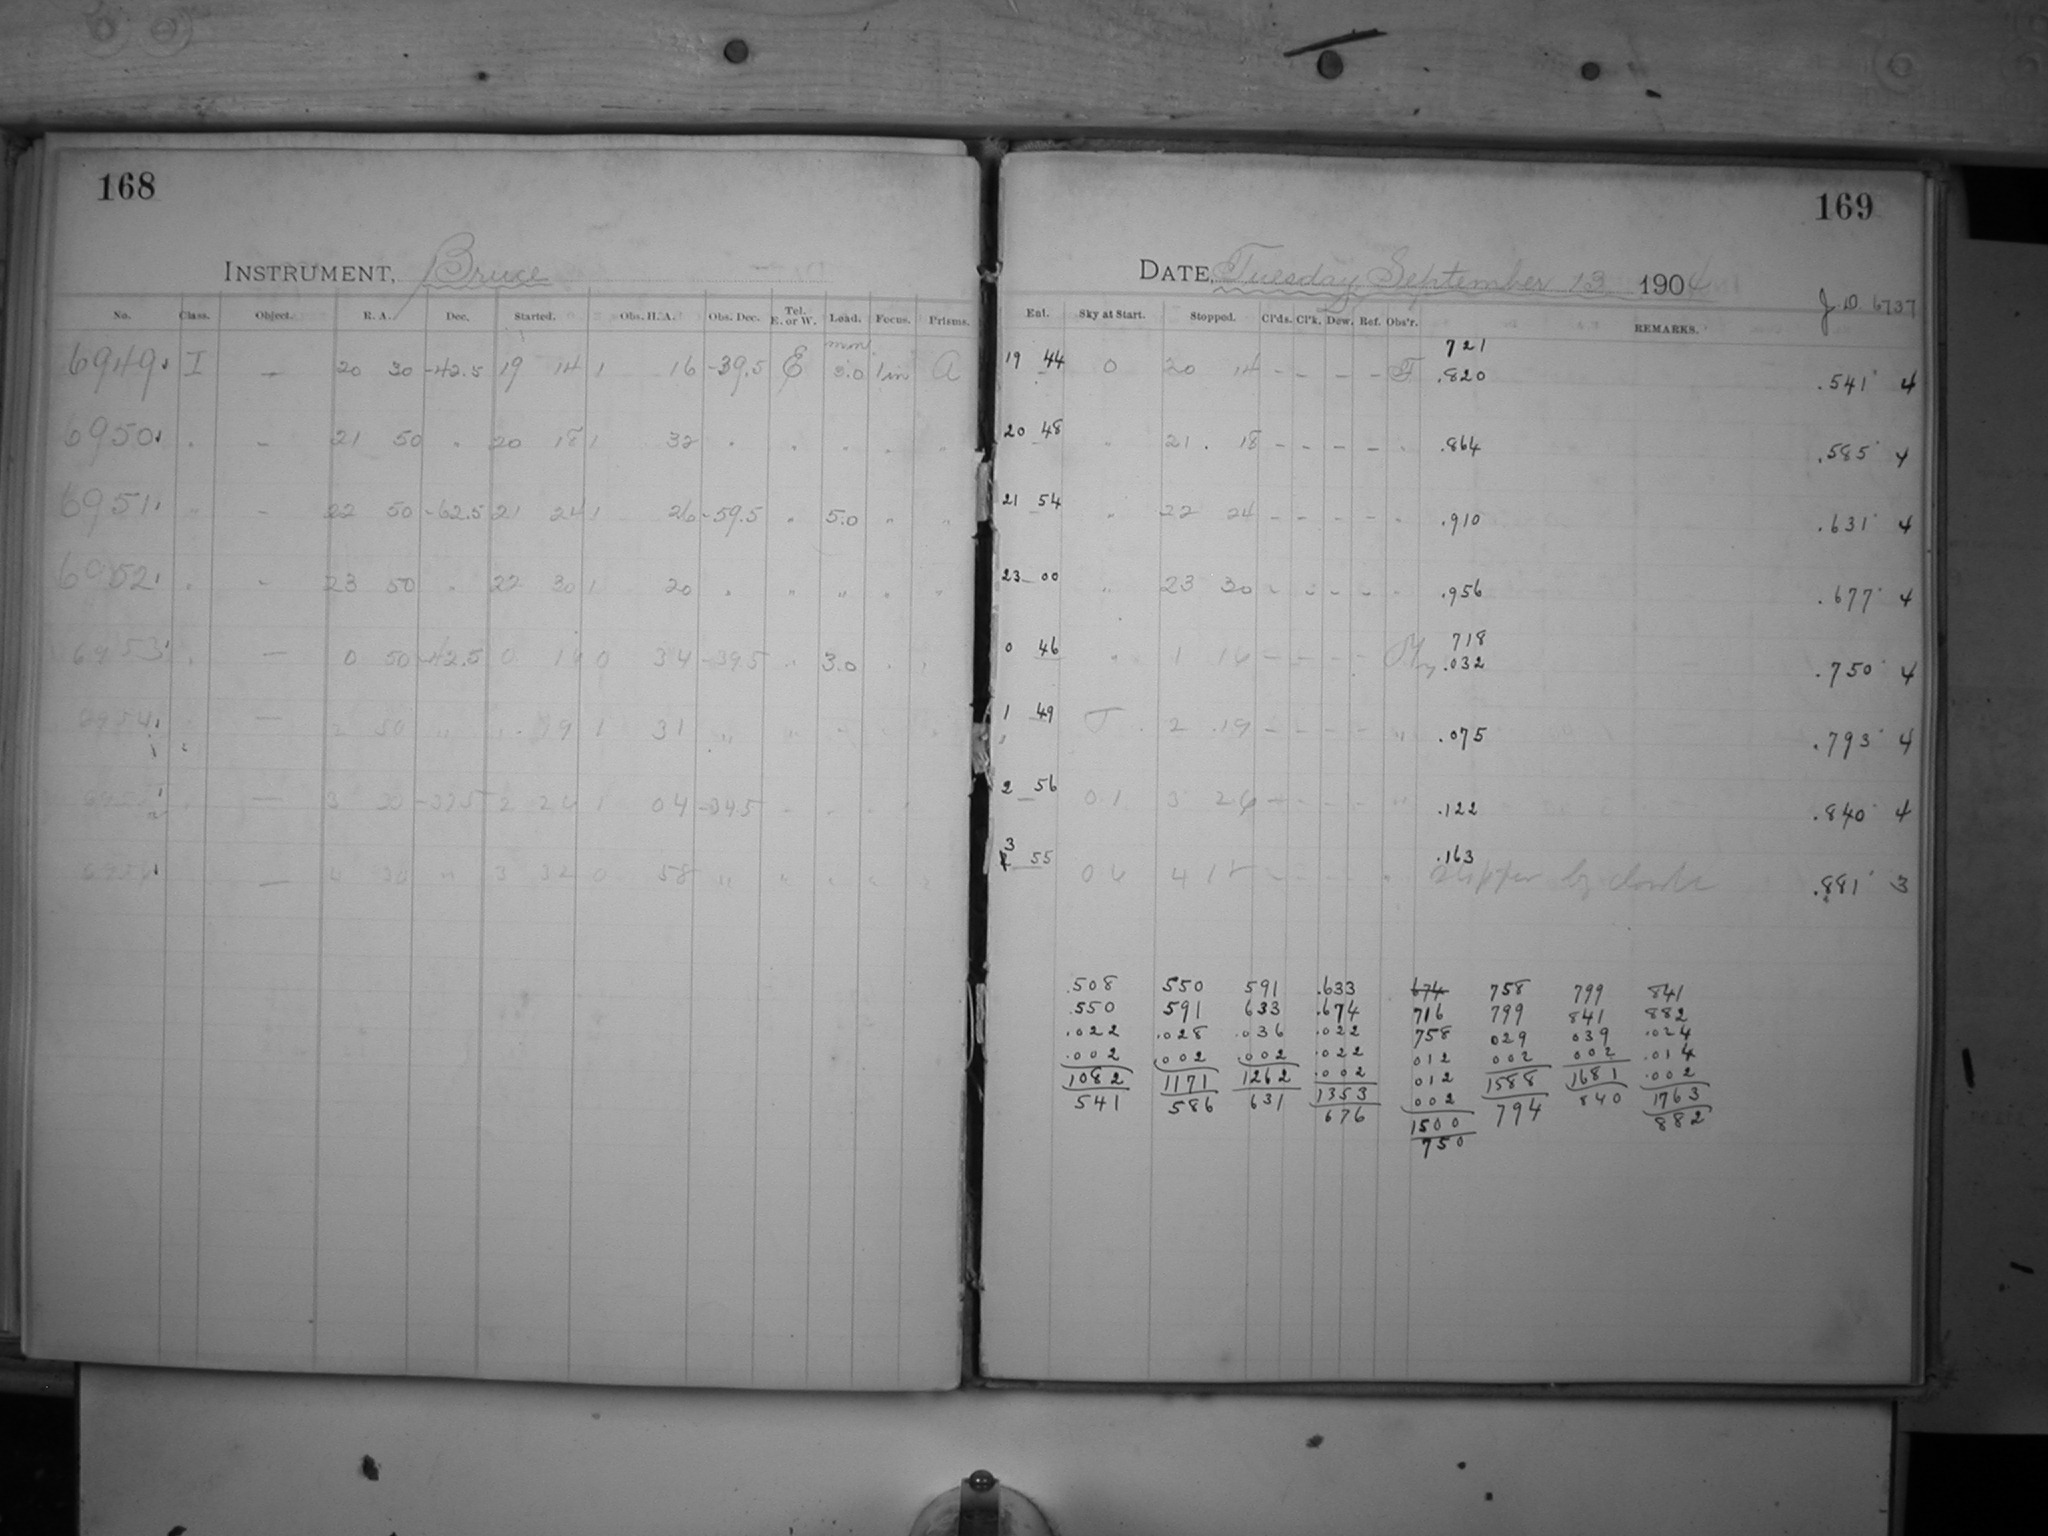 168
INSTRUMENT, Bruce
No. Class. Object. R. A. Dec. Started. Obs. H. A. Obs. Dec. Tel. E. or W. Load. Focus. Prisms.
6949 I — 20 30 -42.5 19 14 1 16 -39.5 E mm 3.0 1 in A
6950 " – 21 50 " 20 18 1 32 " " " " "
6951 " – 22 50 -62.5 21 24 1 26 -59.5 " 5.0 " "
6952 " – 23 50 " 22 30 1 20 " " " " "
6953 " — 0 50 -42.5 0 16 0 34 -39.5 " 3.0 " "
6954 " — 50 " 1 19 1 31 " " " " "
— 3 30 -37.5 2 26 1 04 -34.5 " " " "
— 4 30 " 3 32 0 58 " " " " "
169
DATE, Tuesday September 13 1904
J. D. 6737
Ent. Sky at Start. Stopped. Cl'ds. Cl'k. Dew. Ref. Obs'r. REMARKS.
721
19 44 0 20 14 – – – – F .820 .541 4
20 48 " 21 18 – – – – " .864 .585 4
21 54 " 22 24 – – – – " .910 .631 4
23 00 " 23 30 – – – – " .956 .677 4
718
0 46 " 1 16 – – – – .032 .750 4
1 49 2 19 – – – – " .075 .793 4
2 56 0 1 3 26 – – – – " .122 .840 4
3 55 4 – – – – " .163 by clouds .881 3
.508 550 591 .633 674 758 799 841
.550 591 633 .674 716 799 841 882
.022 .028 .036 .022 758 029 039 .024
.002 002 002 .022 012 002 002 .014
1082 1171 1262 .002 012 1588 1681 .002
541 586 631 1353 002 794 840 1763
676 1500 882
750